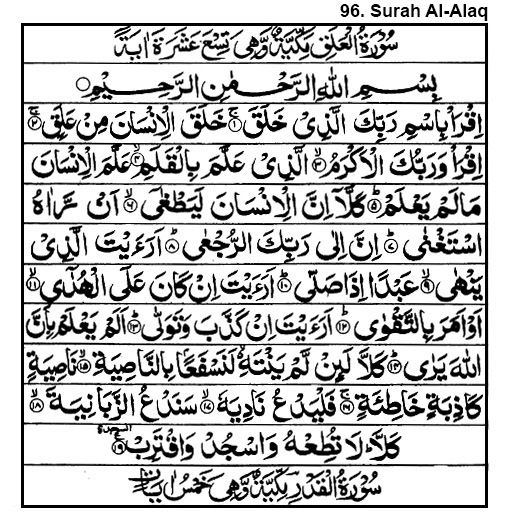 96. Surah Al-Alaq
سُوْرَةُ الْعَلَقِ مَكِّيَّةٌ وَّهِيَ تِسْعَ عَشْرَةَ اٰيَةً
بِسْمِ اللّٰهِ الرَّحْمٰنِ الرَّحِيْمِ
اِقْرَاْ بِاسْمِ رَبِّكَ الَّذِيْ خَلَقَ ۚ‏﴿۱﴾ خَلَقَ الْاِنْسَانَ مِنْ عَلَقٍ ۚ‏﴿۲﴾
اِقْرَاْ وَرَبُّكَ الْاَكْرَمُ ۙ‏﴿۳﴾ الَّذِيْ عَلَّمَ بِالْقَلَمِ ۙ‏﴿۴﴾ عَلَّمَ الْاِنْسَانَ
مَا لَمْ يَعْلَمْ ؕ‏﴿۵﴾ كَلَّاۤ اِنَّ الْاِنْسَانَ لَيَطْغٰٓى ۙ‏﴿۶﴾ اَنْ رَّاٰهُ
اسْتَغْنٰى ؕ‏﴿۷﴾ اِنَّ اِلٰى رَبِّكَ الرُّجْعٰى ؕ‏﴿۸﴾ اَرَءَيْتَ الَّذِيْ
يَنْهٰى ۙ‏﴿۹﴾ عَبْدًا اِذَا صَلّٰى ؕ‏﴿۱۰﴾ اَرَءَيْتَ اِنْ كَانَ عَلَى الْهُدٰٓى ۙ‏﴿۱۱﴾
اَوْ اَمَرَ بِالتَّقْوٰى ؕ‏﴿۱۲﴾ اَرَءَيْتَ اِنْ كَذَّبَ وَتَوَلّٰى ؕ‏﴿۱۳﴾ اَلَمْ يَعْلَمْ بِاَنَّ
اللّٰهَ يَرٰى ؕ‏﴿۱۴﴾ كَلَّا لَئِنْ لَّمْ يَنْتَهِ ۙ لَنَسْفَعًۢا بِالنَّاصِيَةِ ۙ‏﴿۱۵﴾ نَاصِيَةٍ
كَاذِبَةٍ خَاطِئَةٍ ۚ‏﴿۱۶﴾ فَلْيَدْعُ نَادِيَهٗ ۙ‏﴿۱۷﴾ سَنَدْعُ الزَّبَانِيَةَ ۙ‏﴿۱۸﴾
كَلَّا ؕ لَا تُطِعْهُ وَاسْجُدْ وَاقْتَرِبْ ۩‏﴿۱۹﴾ السجدة
سُوْرَةُ الْقَدْرِ مَكِّيَّةٌ وَّهِيَ خَمْسُ اٰيَاتٍ